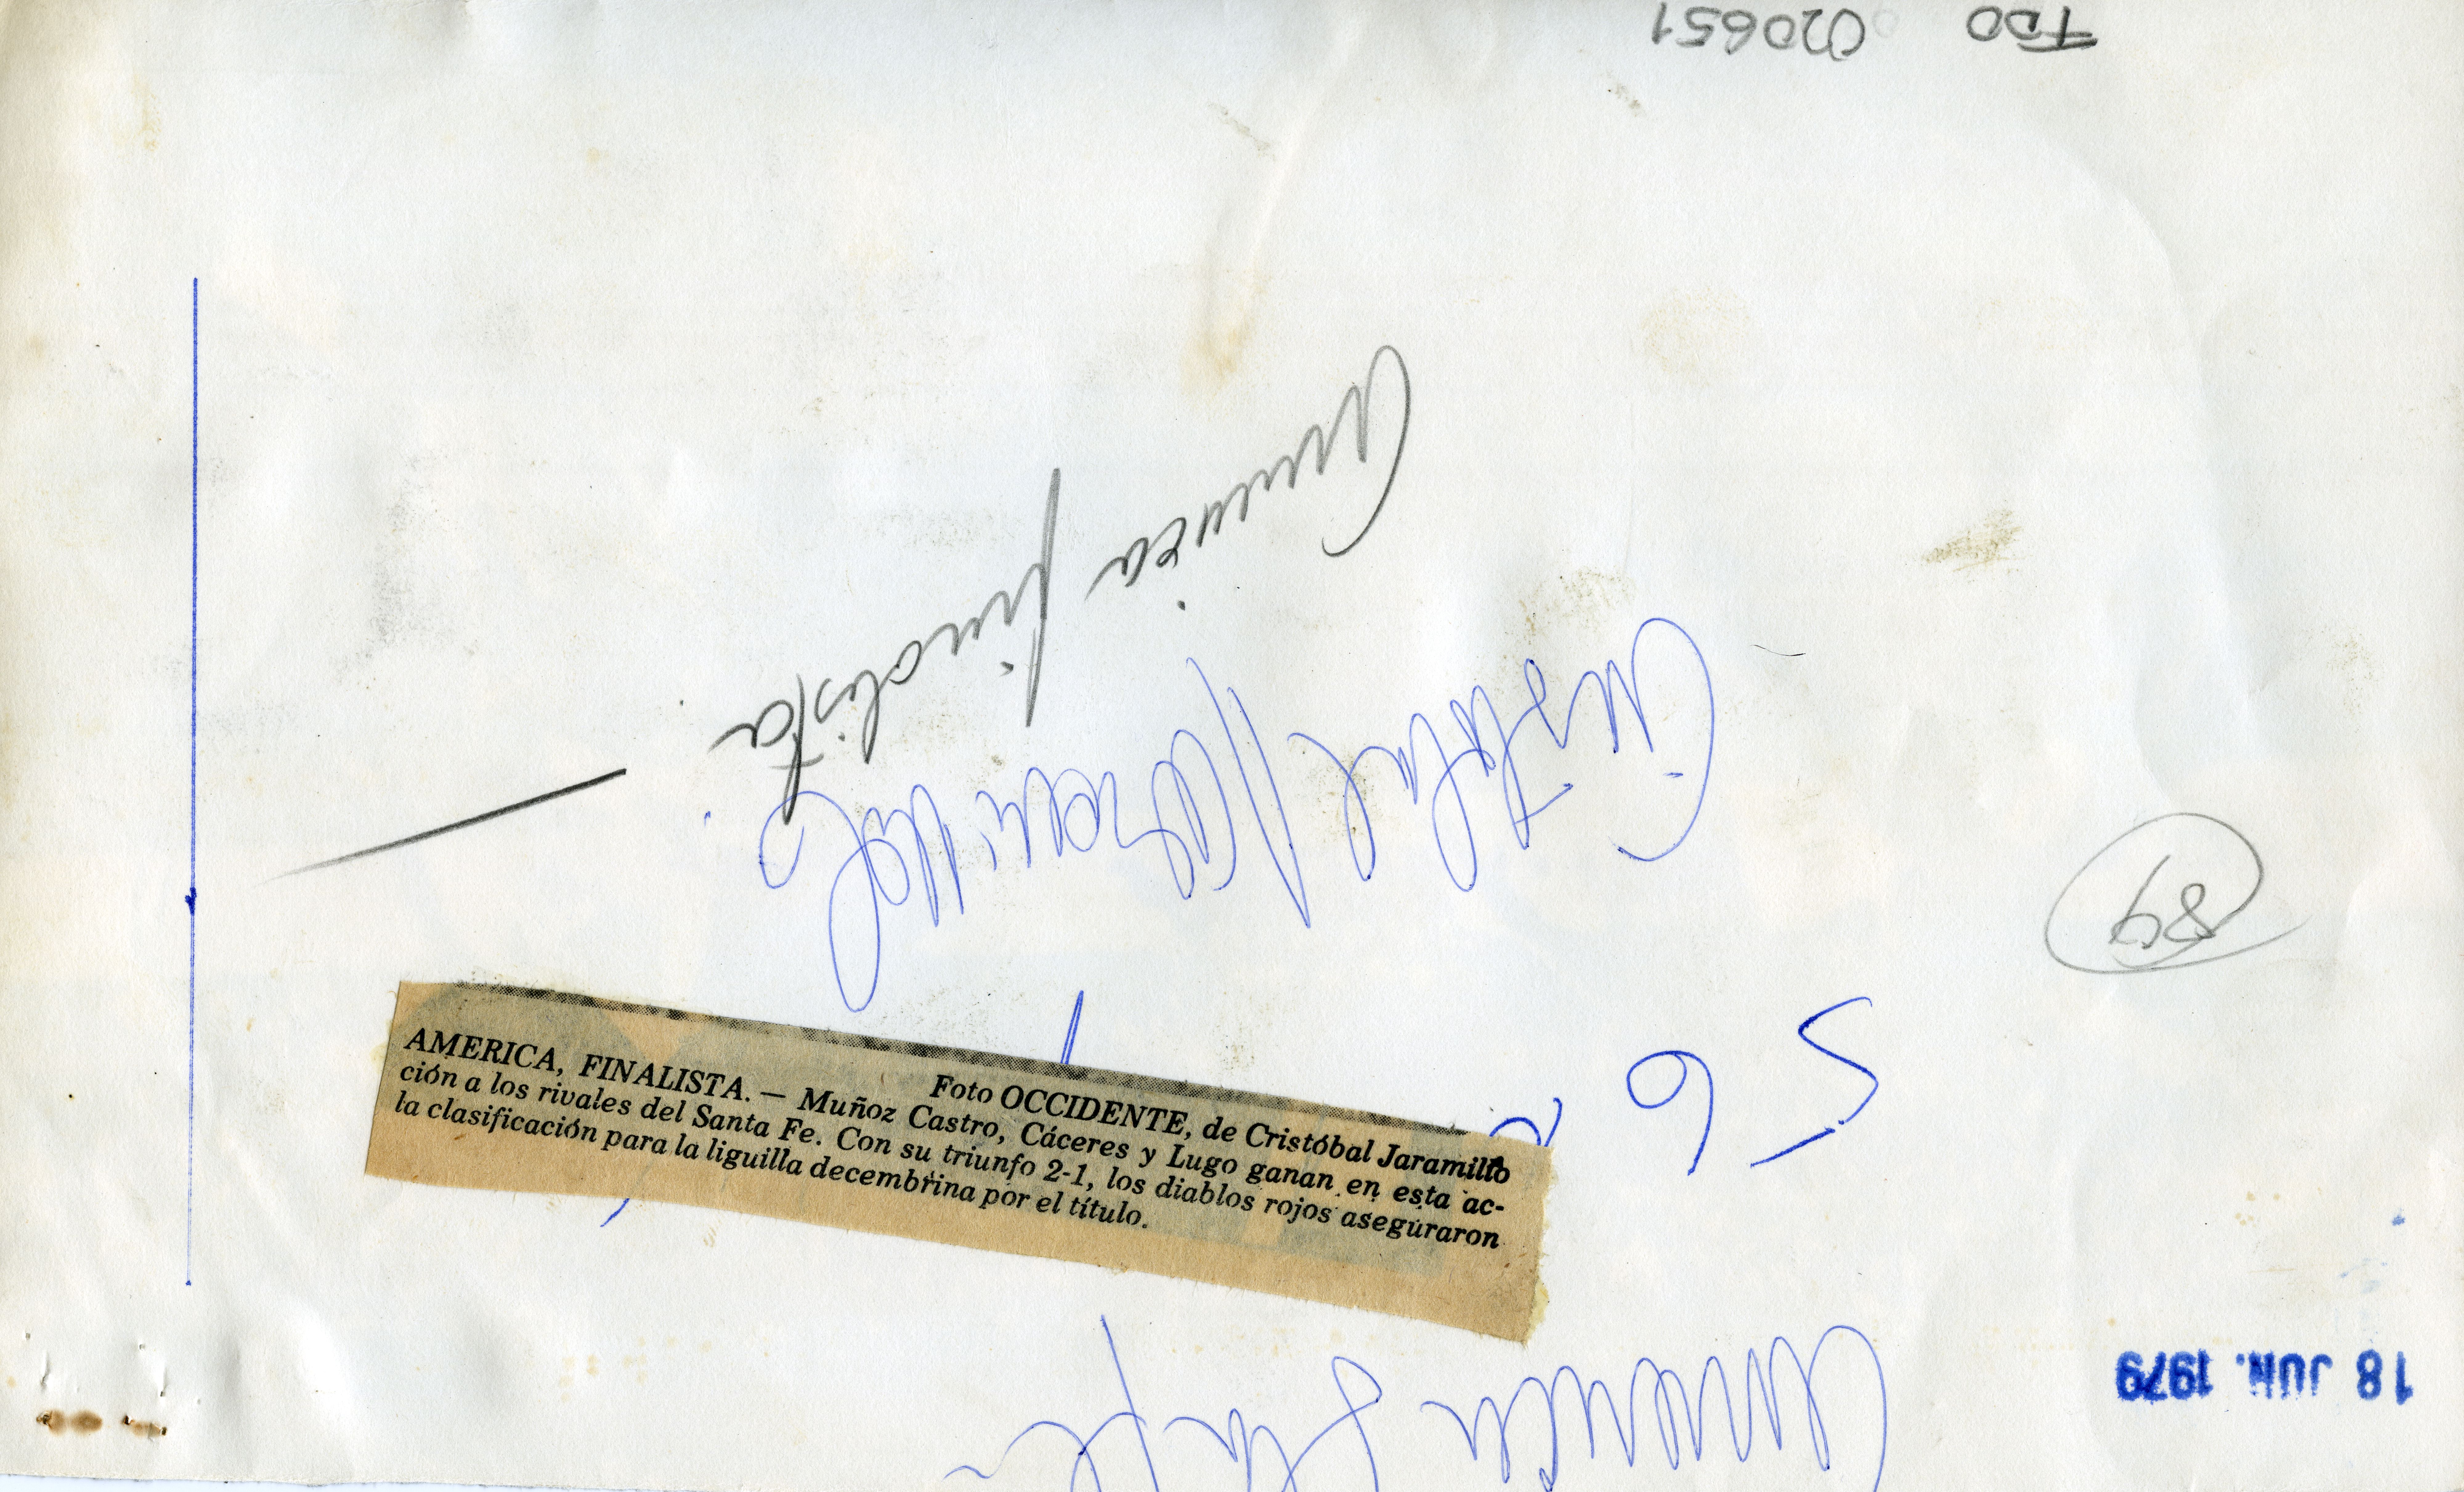 FDO 020651
America finalista
Cristobal Jaramillo
89
56
Foto OCCIDENTE, de Cristóbal Jaramillo
AMERICA, FINALISTA. — Muñoz Castro, Cáceres y Lugo ganan en esta ac-
ción a los rivales del Santa Fe. Con su triunfo 2-1, los diablos rojos aseguraron
la clasificación para la liguilla decembrina por el título.
18 JUN. 1979
America